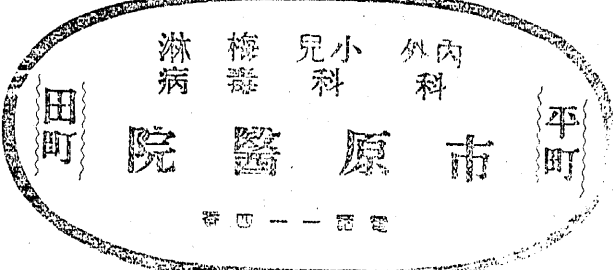 內外科 小兒科 梅毒 淋病
平町
市原醫院
田町
電話一一四番